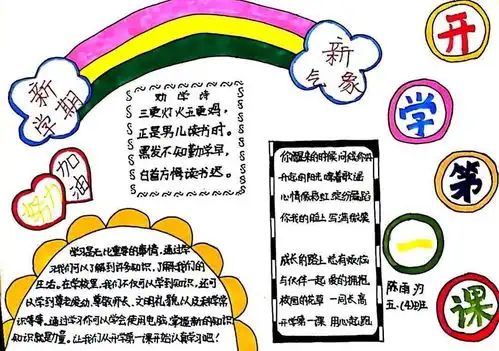 新学期
新气象
开学第一课
劝学诗
三更灯火五更鸡,
正是男儿读书时。
黑发不知勤学早,
白首方悔读书迟。
努力
加油
你醒来的时候
心情像彩虹 缤纷舞蹈
你我的脸上 写满微笑
成长的路上 总有烦恼
与伙伴一起 爱的拥抱
校园的花草 一同长高
开学第一课 用心起跑
陈雨
五.(4)班
学习是
习我们可以了解到许多知识,了解我们的
生活。在学校里,我们不仅可以学到知识,还可
以学到尊老爱幼、尊敬师长、文明礼貌,以及科学常
识等等。通过学习你可以学会使用电脑,掌握新的知识
知识就是力量。让我们从开学第一课开始认真学习吧!